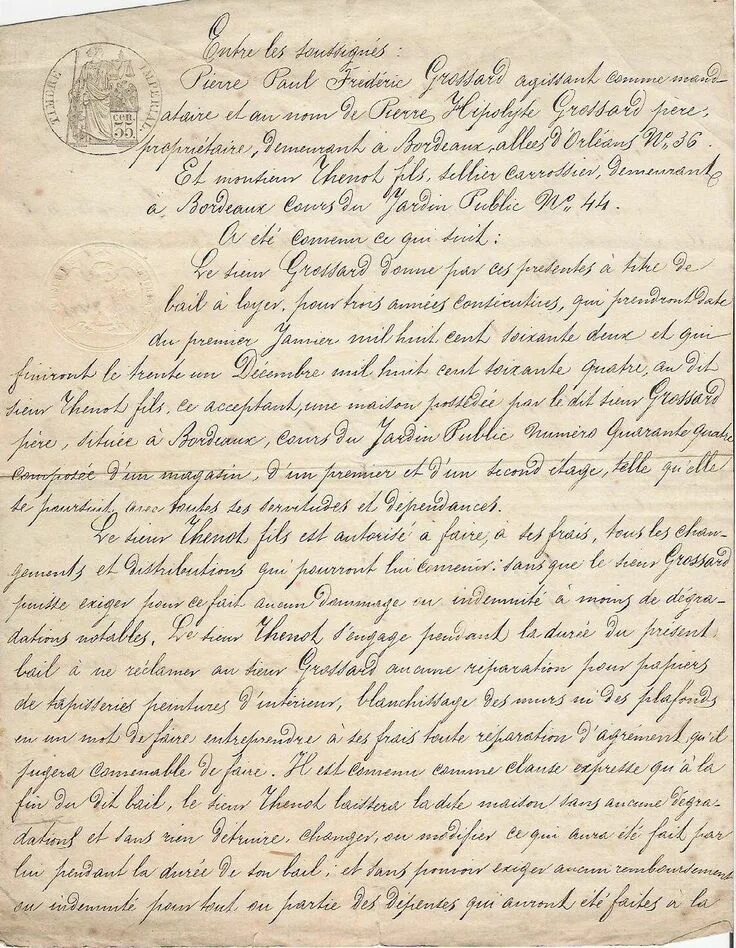 TIMBRE IMPERIAL
CEN.
35
Entre les soussignés :
Pierre Paul Frédéric Grossard agissant comme mand-
ataire et au nom de Pierre Hipolyte Grossard père,
propriétaire, demeurant à Bordeaux, allées d'Orléans No. 36.
Et monsieur Thenot fils, sellier carrossier, demeurant
à Bordeaux cours du Jardin Public No. 44.
A été convenu ce qui suit :
Le sieur Grossard donne par ces présentes à titre de
bail à loyer, pour trois années consécutives, qui prendront date
du premier Janvier mil huit cent soixante deux et qui
finiront le trente un Décembre mil huit cent soixante quatre, au dit
sieur Thenot fils, ce acceptant, une maison possédée par le dit sieur Grossard
père, située à Bordeaux, cours du Jardin Public numéro Quarante quatre
composée d'un magasin, d'un premier et d'un second étage, telle qu'elle
se poursuit avec toutes ses servitudes et dépendances.
Le sieur Thenot fils est autorisé à faire, à ses frais, tous les chan-
gements et distributions qui pourront lui convenir : sans que le sieur Grossard
puisse exiger pour ce fait aucun dommage ou indemnité à moins de dégra-
dations notables. Le sieur Thenot s'engage pendant la durée du présent
bail à ne réclamer au sieur Grossard aucune réparation pour papiers
de tapisseries peintures d'intérieur, blanchissage des murs ni des plafonds
en un mot de faire entreprendre à ses frais toute réparation d'agrément, qu'il
jugera convenable de faire. Il est convenu comme clause expresse qu'à la
fin du dit bail, le sieur Thenot laissera la dite maison sans aucune dégra-
dations et sans rien détruire, changer, ou modifier ce qui aura été fait par
lui pendant la durée de son bail ; et sans pouvoir exiger aucun remboursement
ou indemnité pour tout ou partie des dépenses qui auront été faites à la